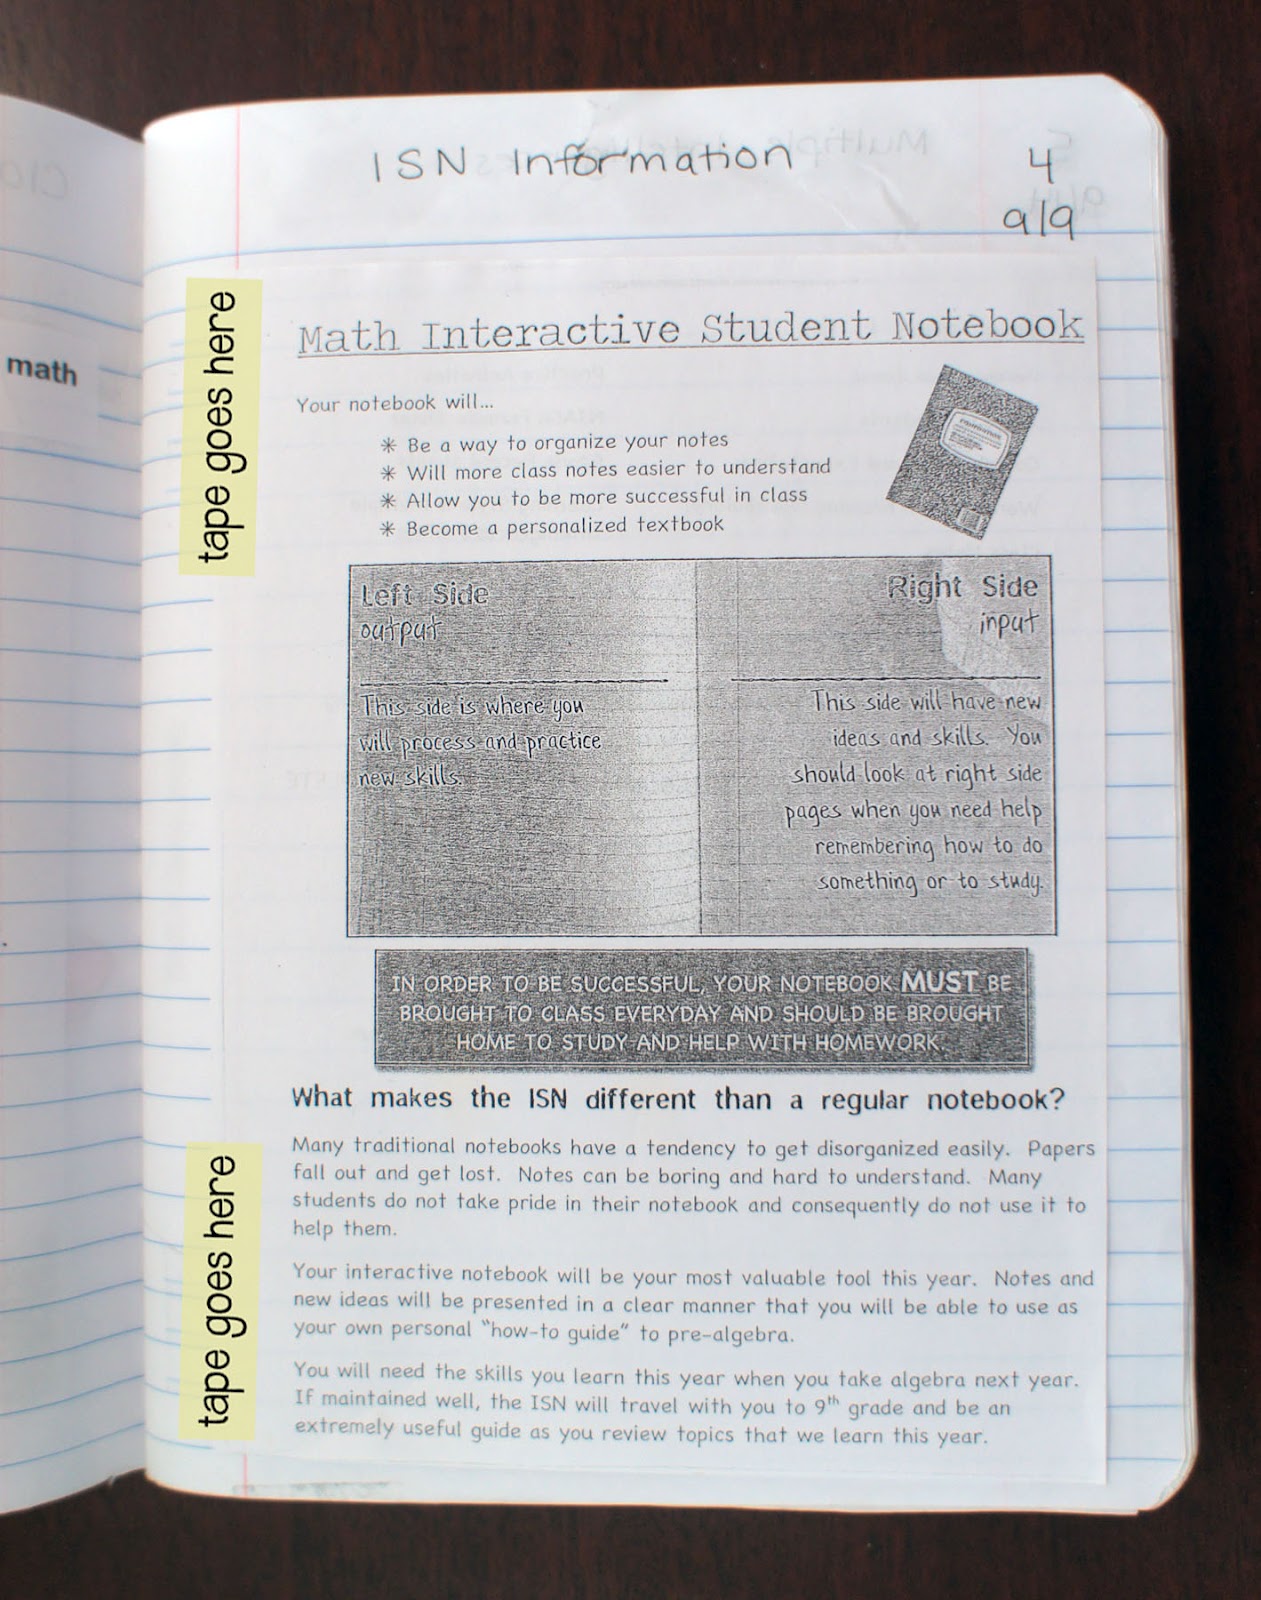 ISN Information
4
9/9
math
tape goes here
Math Interactive Student Notebook
Your notebook will...
✳ Be a way to organize your notes
✳ Will more class notes easier to understand
✳ Allow you to be more successful in class
✳ Become a personalized textbook
Left Side
output
This side is where you
will process and practice
new skills.
Right Side
input
This side will have new
ideas and skills. You
should look at right side
pages when you need help
remembering how to do
something or to study.
IN ORDER TO BE SUCCESSFUL, YOUR NOTEBOOK MUST BE
BROUGHT TO CLASS EVERYDAY AND SHOULD BE BROUGHT
HOME TO STUDY AND HELP WITH HOMEWORK.
What makes the ISN different than a regular notebook?
tape goes here
Many traditional notebooks have a tendency to get disorganized easily. Papers
fall out and get lost. Notes can be boring and hard to understand. Many
students do not take pride in their notebook and consequently do not use it to
help them.
Your interactive notebook will be your most valuable tool this year. Notes and
new ideas will be presented in a clear manner that you will be able to use as
your own personal “how-to guide” to pre-algebra.
You will need the skills you learn this year when you take algebra next year.
If maintained well, the ISN will travel with you to 9th grade and be an
extremely useful guide as you review topics that we learn this year.